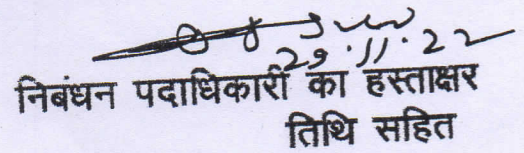 29.11.22
निबंधन पदाधिकारी का हस्ताक्षर
तिथि सहित